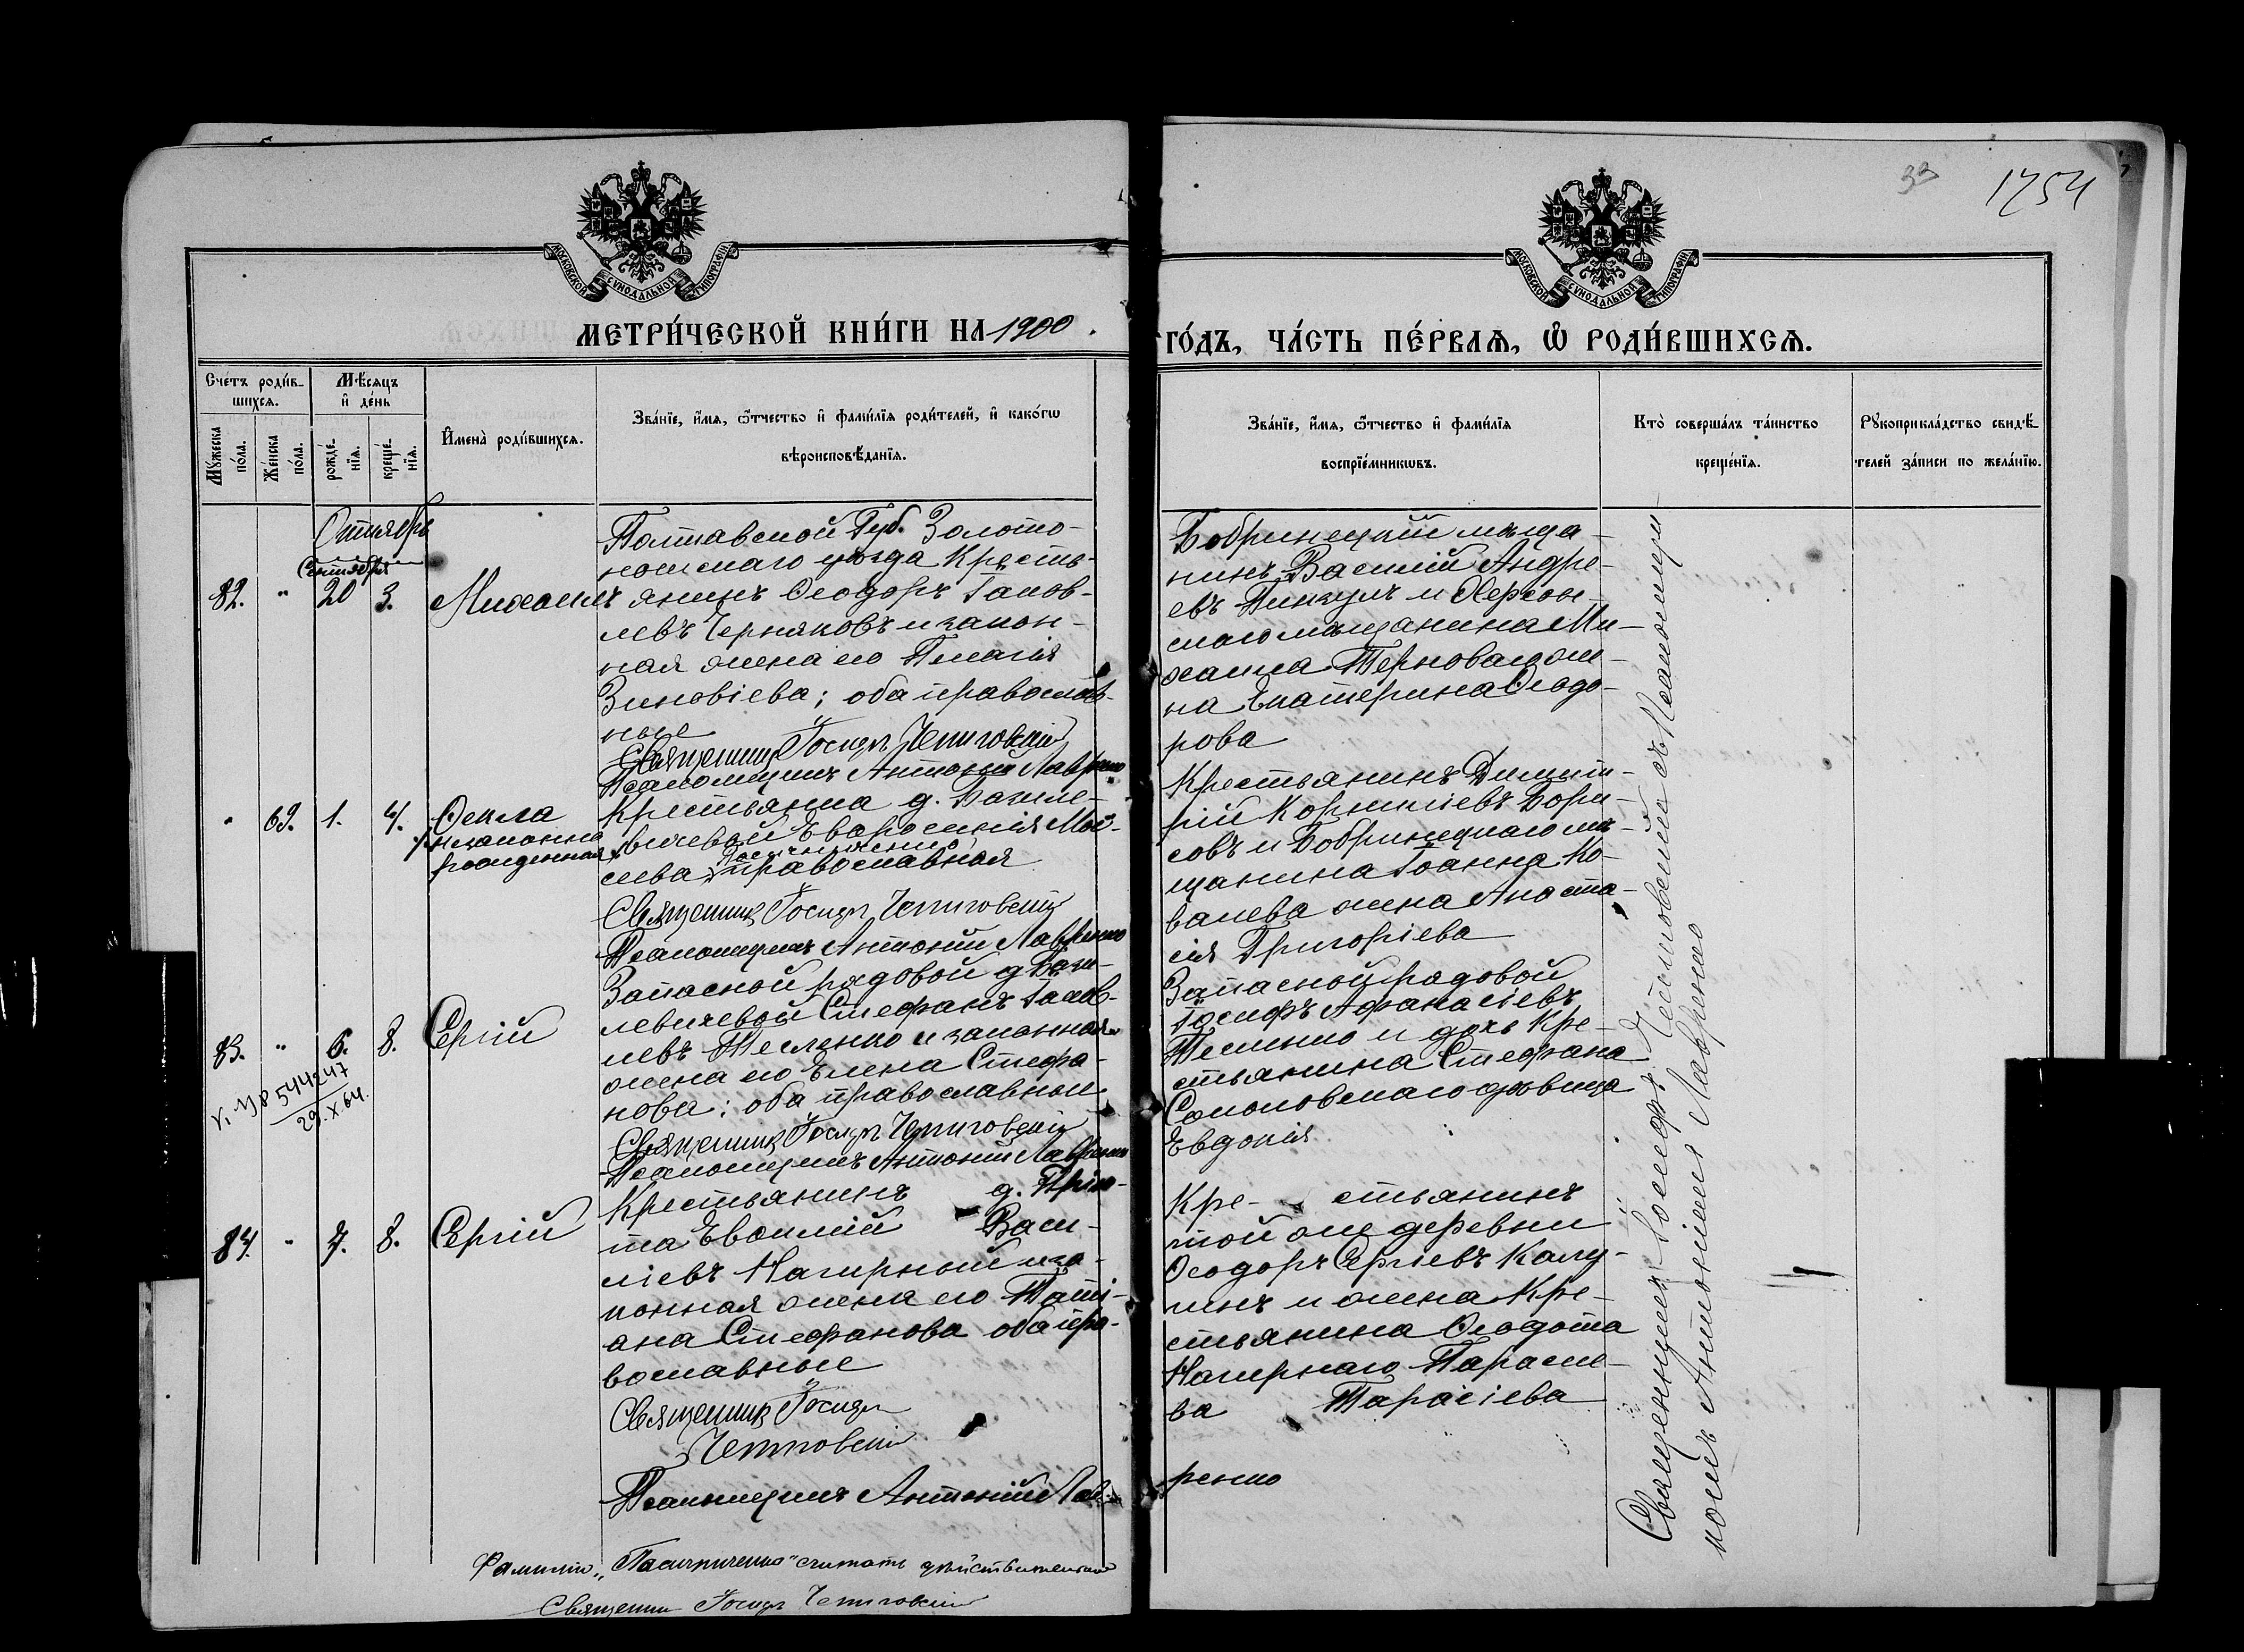 33 1754
МОСКОВСКОЙ СУНОДАЛЬНОЙ ТИПОГРАФІИ
МОСКОВСКОЙ СУНОДАЛЬНОЙ ТИПОГРАФІИ
МЕТРИ́ЧЕСКОЙ КНИ́ГИ НА 1900
ГО́ДЪ, ЧА́СТЬ ПЕ́РВАѦ, Ѡ РОДИ́ВШИХСѦ.
Сче́тъ роди́в-
шихсѧ.
Мꙋ́жеска по́ла.
Же́нска по́ла.
Мѣ́сѧцъ
и де́нь
рожде́-
нїѧ.
креще́-
нїѧ.
И҆мена̀ роди́вшихсѧ.
Зва́нїе, и҆́мѧ, ѻ҆́тчество и҆ фами́лїѧ роди́телей, и҆ како́гѡ
вѣроисповѣ́данїѧ.
Зва́нїе, и҆́мѧ, ѻ҆́тчество и҆ фами́лїѧ
воспрїе́мникѡвъ.
Кто̀ соверша́лъ та́инство
креще́нїѧ.
Рꙋкоприкла́дство свидѣ́-
телей за́писи по жела́нїю.
Октябрь
Сентября
82. " 20 3. Михаилъ
Полтавской Губ. Золото-
ношскаго уѣзда Кресть-
янинъ Ѳеодоръ Іаков-
левъ Черняковъ и закон-
ная жена его Пелагія
Зиновіева; оба православ-
ные
Священникъ Іосифъ Чепиговскій
Псаломщикъ Антоній Лавренко
Бобринецкій мѣща-
нинъ Василій Андре-
евъ и Херсон-
скаго мѣщанина Ми-
хаила Терноваго же-
на Екатерина Ѳеодо-
рова
" 69. 1. 4. Ѳекла
незаконно
рожденная
Крестьянка д. Василе-
вичевой Евфросинія Мой-
Пасичниченко
сеева православная
Священникъ Іосифъ Чепиговскій
Псаломщикъ Антоній Лавренко
Крестьянинъ Димит-
рій Корниліевъ Бори-
совъ и Бобринецкаго мѣ-
щанина Іоанна Ко-
валева жена Анаста-
сія Григоріева
83. " 6. 8. Сергій
544247
29.X 64.
Запасной рядовой д. Васи-
левичевой Стефанъ Іаков-
левъ Тесленко и законная
жена его Елена Стефа-
нова; оба православные
Священникъ Іосифъ Чепиговскій
Псаломщикъ Антоній Лавренко
Запасной рядовой
Іосифъ Афанасіевъ
Тесленко и дочь Кре-
стьянина Стефана
Соколовскаго дѣвица
Евдокія
84. " 7. 8. Сергій
Крестьянинъ д. Прію-
та Евфимій Васи-
ліевъ Нагирный и за-
конная жена его Таті-
ана Стефанова оба пра-
вославные
Священникъ Іосифъ
Чепиговскій
Псаломщикъ Антоній Лав-
ренко
Кре- стьянинъ
той же деревни
Ѳеодоръ Сергіевъ
и жена Кре-
стьянина Ѳеодота
Нагирнаго Параске-
ва Тарасіева
Священникъ Іосифъ Чепиговскій съ Псаломщи-
комъ Антоніемъ Лавренко
Фамилію „Пасичниченко“ считать дѣйствительною
Священникъ Іосифъ Чепиговскій